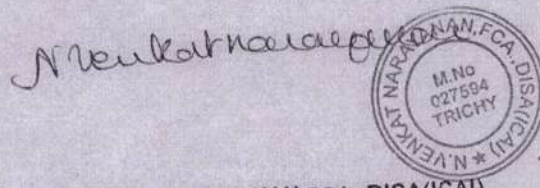 N Venkatnarayanan
N.VENKAT NARAYANAN,FCA.,DISA(ICAI) *
M.No
027594
TRICHY
DISA(ICAI)